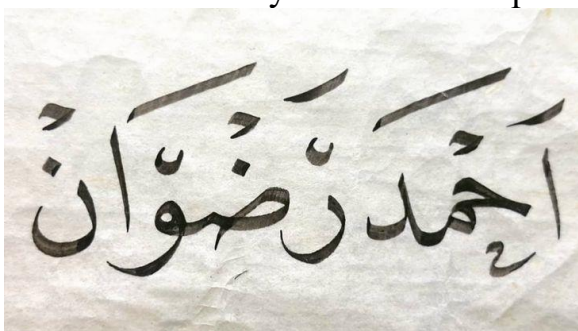 اَحْمَدَ رَضْوَانْ